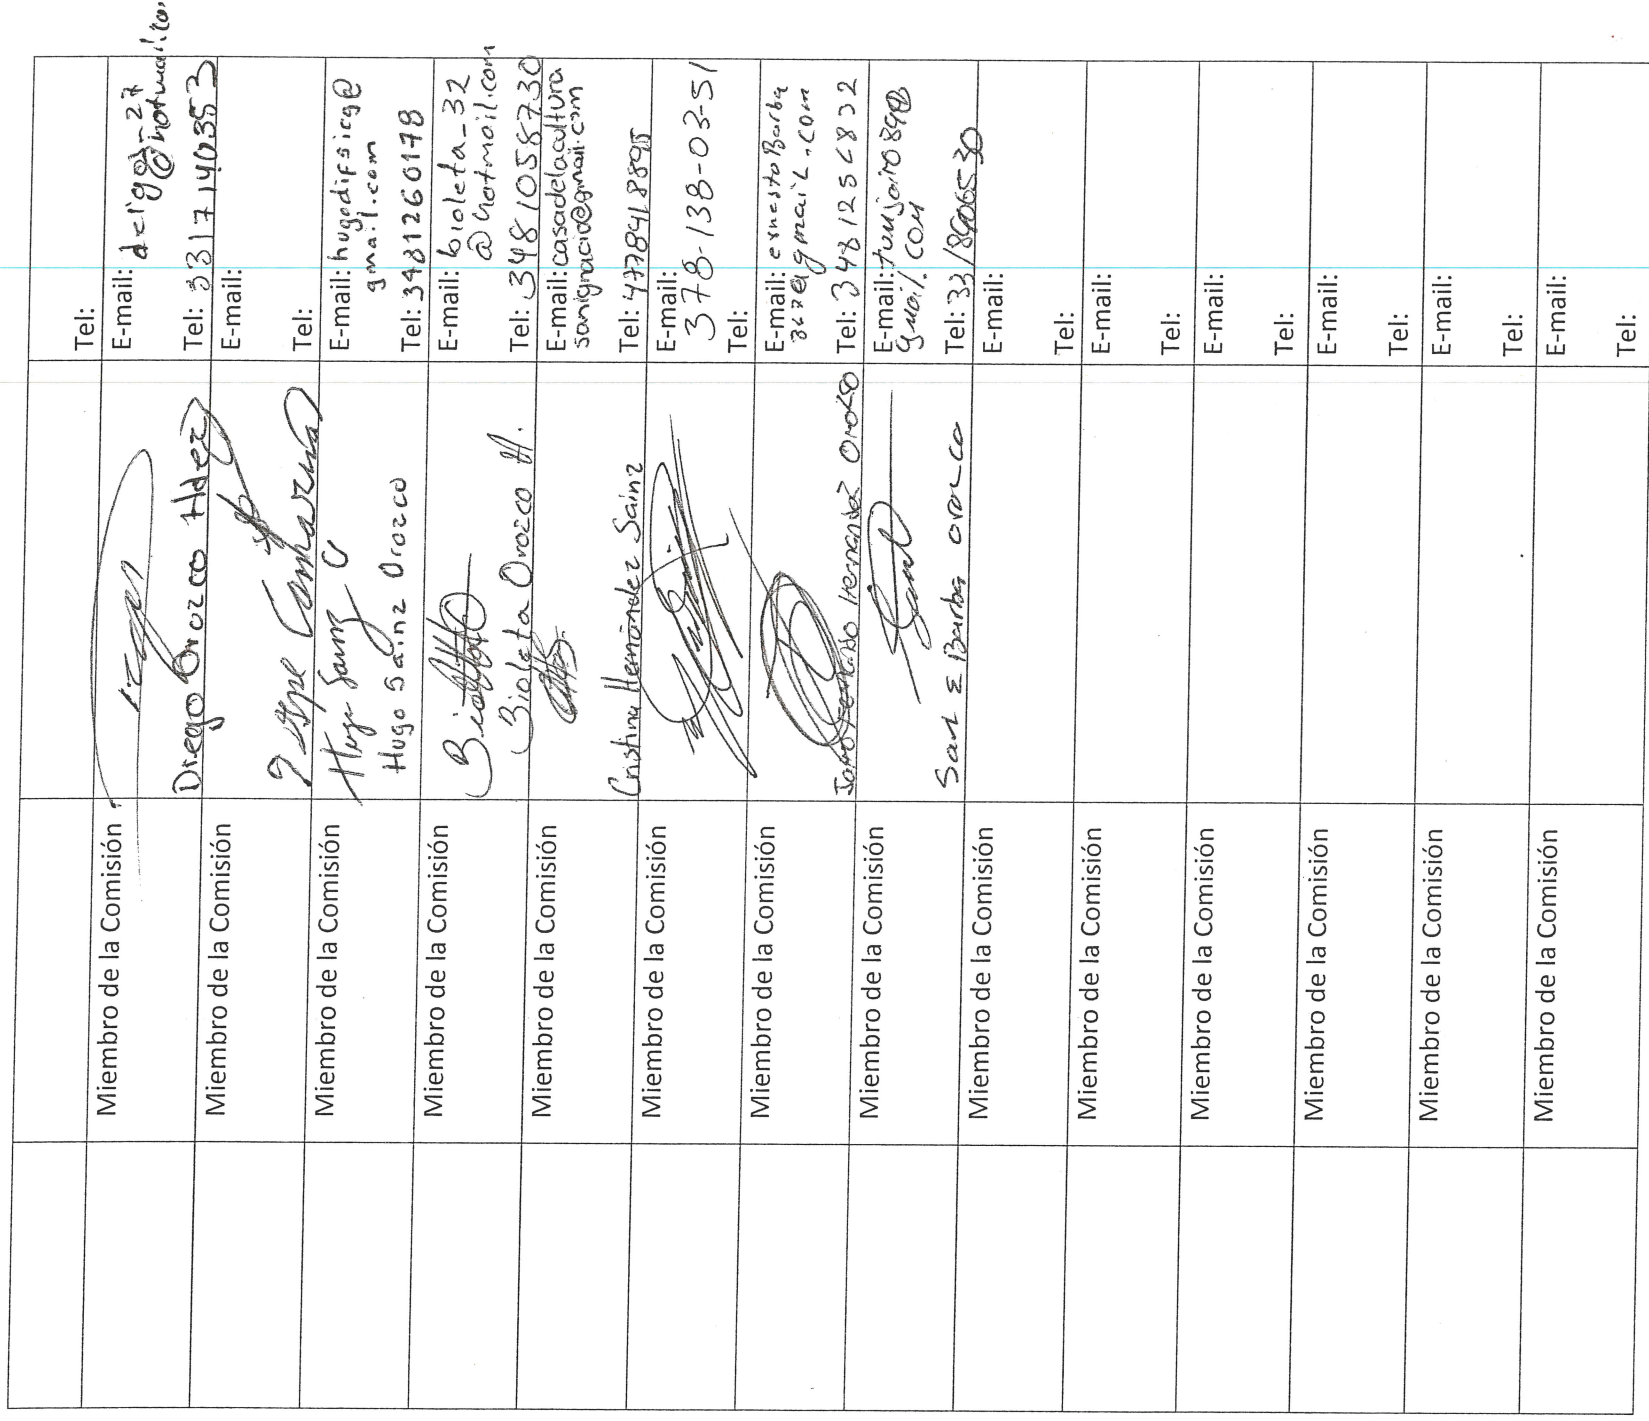 Tel:
Miembro de la Comisión
Diego Orozco Hdez
E-mail:
@hotmail.com
Tel: 3317140353
Miembro de la Comisión
E-mail:
Tel:
Miembro de la Comisión
Hugo Sainz O
Hugo Sainz Orozco
E-mail: hugodifsicg@
gmail.com
Tel: 3481260178
Miembro de la Comisión
Bioleta Orozco H.
E-mail: bioleta_32
@hotmail.com
Tel: 3481058730
Miembro de la Comisión
Cristina Hernández Sainz
E-mail: casadelacultura
sanignacio@gmail.com
Tel: 4778418895
Miembro de la Comisión
E-mail:
378-138-03-51
Tel:
Miembro de la Comisión
Orozco
E-mail: ernestoBarba
@gmail.com
Tel:
Miembro de la Comisión
Saul E Barba Orozco
E-mail:
gmail.com
Tel:
Miembro de la Comisión
E-mail:
Tel:
Miembro de la Comisión
E-mail:
Tel:
Miembro de la Comisión
E-mail:
Tel:
Miembro de la Comisión
E-mail:
Tel:
Miembro de la Comisión
E-mail:
Tel:
Miembro de la Comisión
E-mail:
Tel: